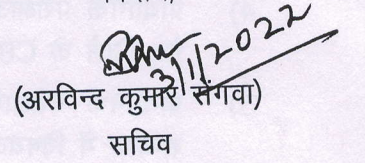 3/1/2022
(अरविन्द कुमार सेंगवा)
सचिव